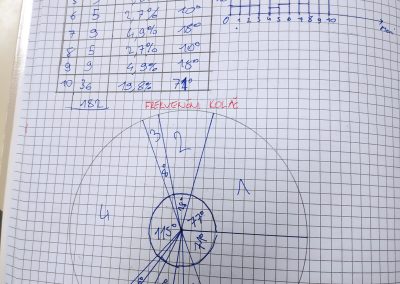 6 5 2,7% 10°
7 9 4,9% 18°
8 5 2,7% 10°
9 9 4,9% 18°
10 36 19,8% 71°
182
0 1 2 3 4 5 6 7 8 9 10
FREKVENČNI KOLAČ
3 2 1
8°
4 115° 28° 77°
71°